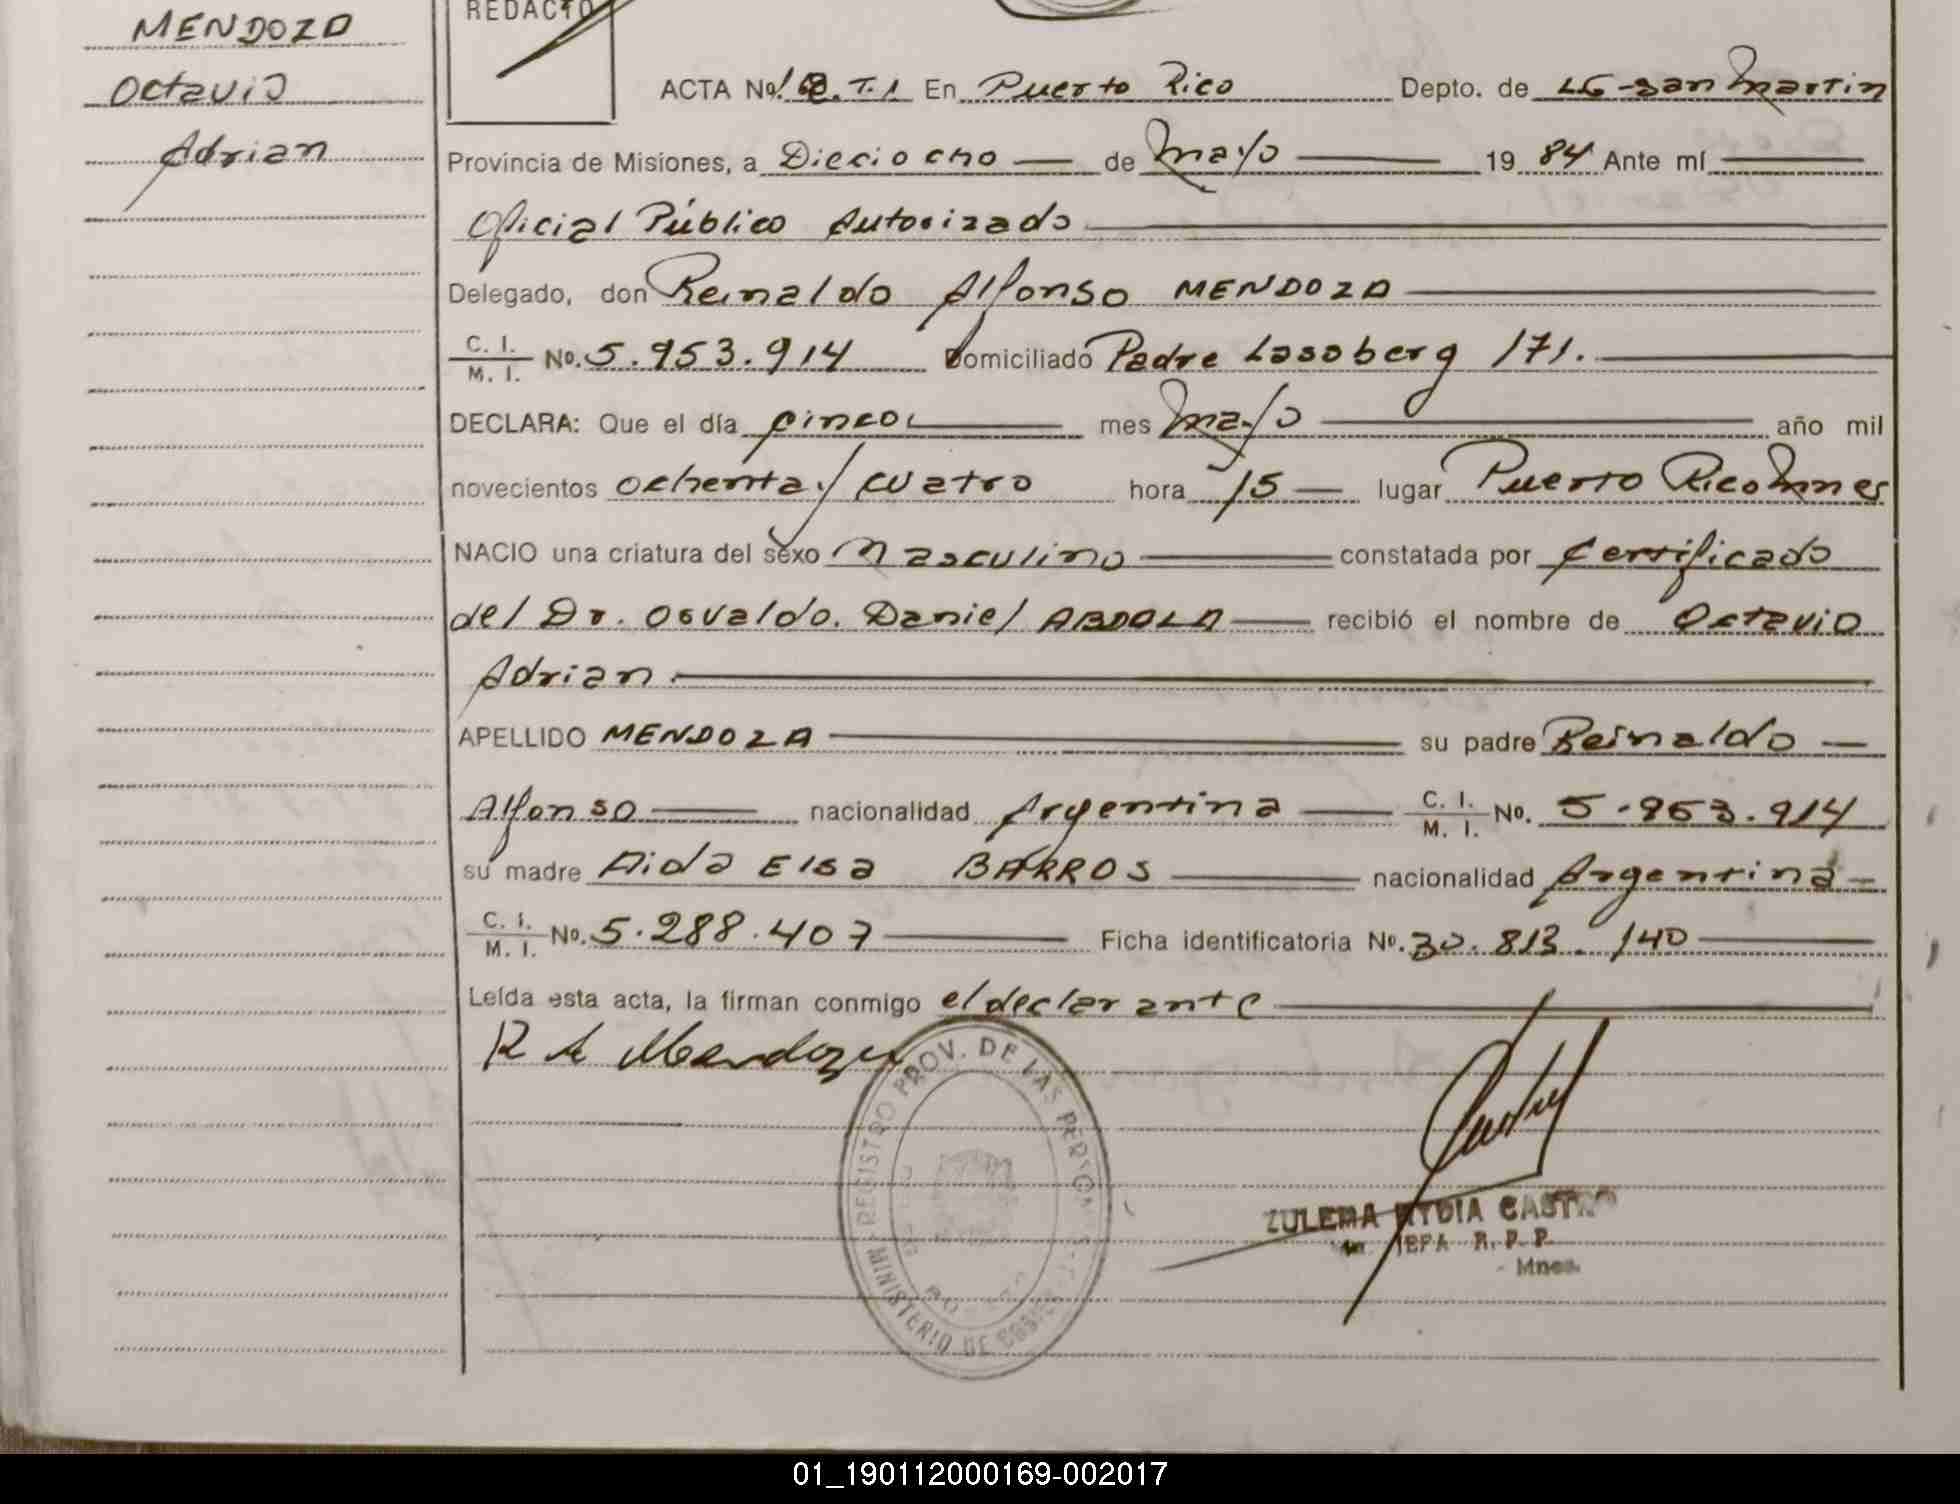 MENDOZA
Octavio
Adrian
REDACTO
ACTA No. T.1 En Puerto Rico Depto. de LG-San Martin
Provincia de Misiones, a Dieciocho de Mayo 1984 Ante mí
Oficial Público Autorizado
Delegado, don Reinaldo Alfonso MENDOZA
C. I.
M. I. No. 5.953.914 Domiciliado Padre 171.
DECLARA: Que el día cinco mes Mayo año mil
novecientos ochenta y cuatro hora 15 lugar Puerto Rico Mnes
NACIO una criatura del sexo Masculino constatada por Certificado
del Dr. Osvaldo. Daniel ABDALA recibió el nombre de Octavio
Adrian
APELLIDO MENDOZA su padre Reinaldo
Alfonso nacionalidad Argentina C. I.
M. I. No. 5.953.914
su madre Aida Elsa BARROS nacionalidad Argentina
C. I.
M. I. No. 5.288.407 Ficha identificatoria No. 30.813.140
Leída esta acta, la firman conmigo el declarante
R A Mendoza
REGISTRO PROV. DE LAS PERSONAS
MINISTERIO DE
ZULEMA CASTRO
R. P. P.
Mnes.
01_190112000169-002017